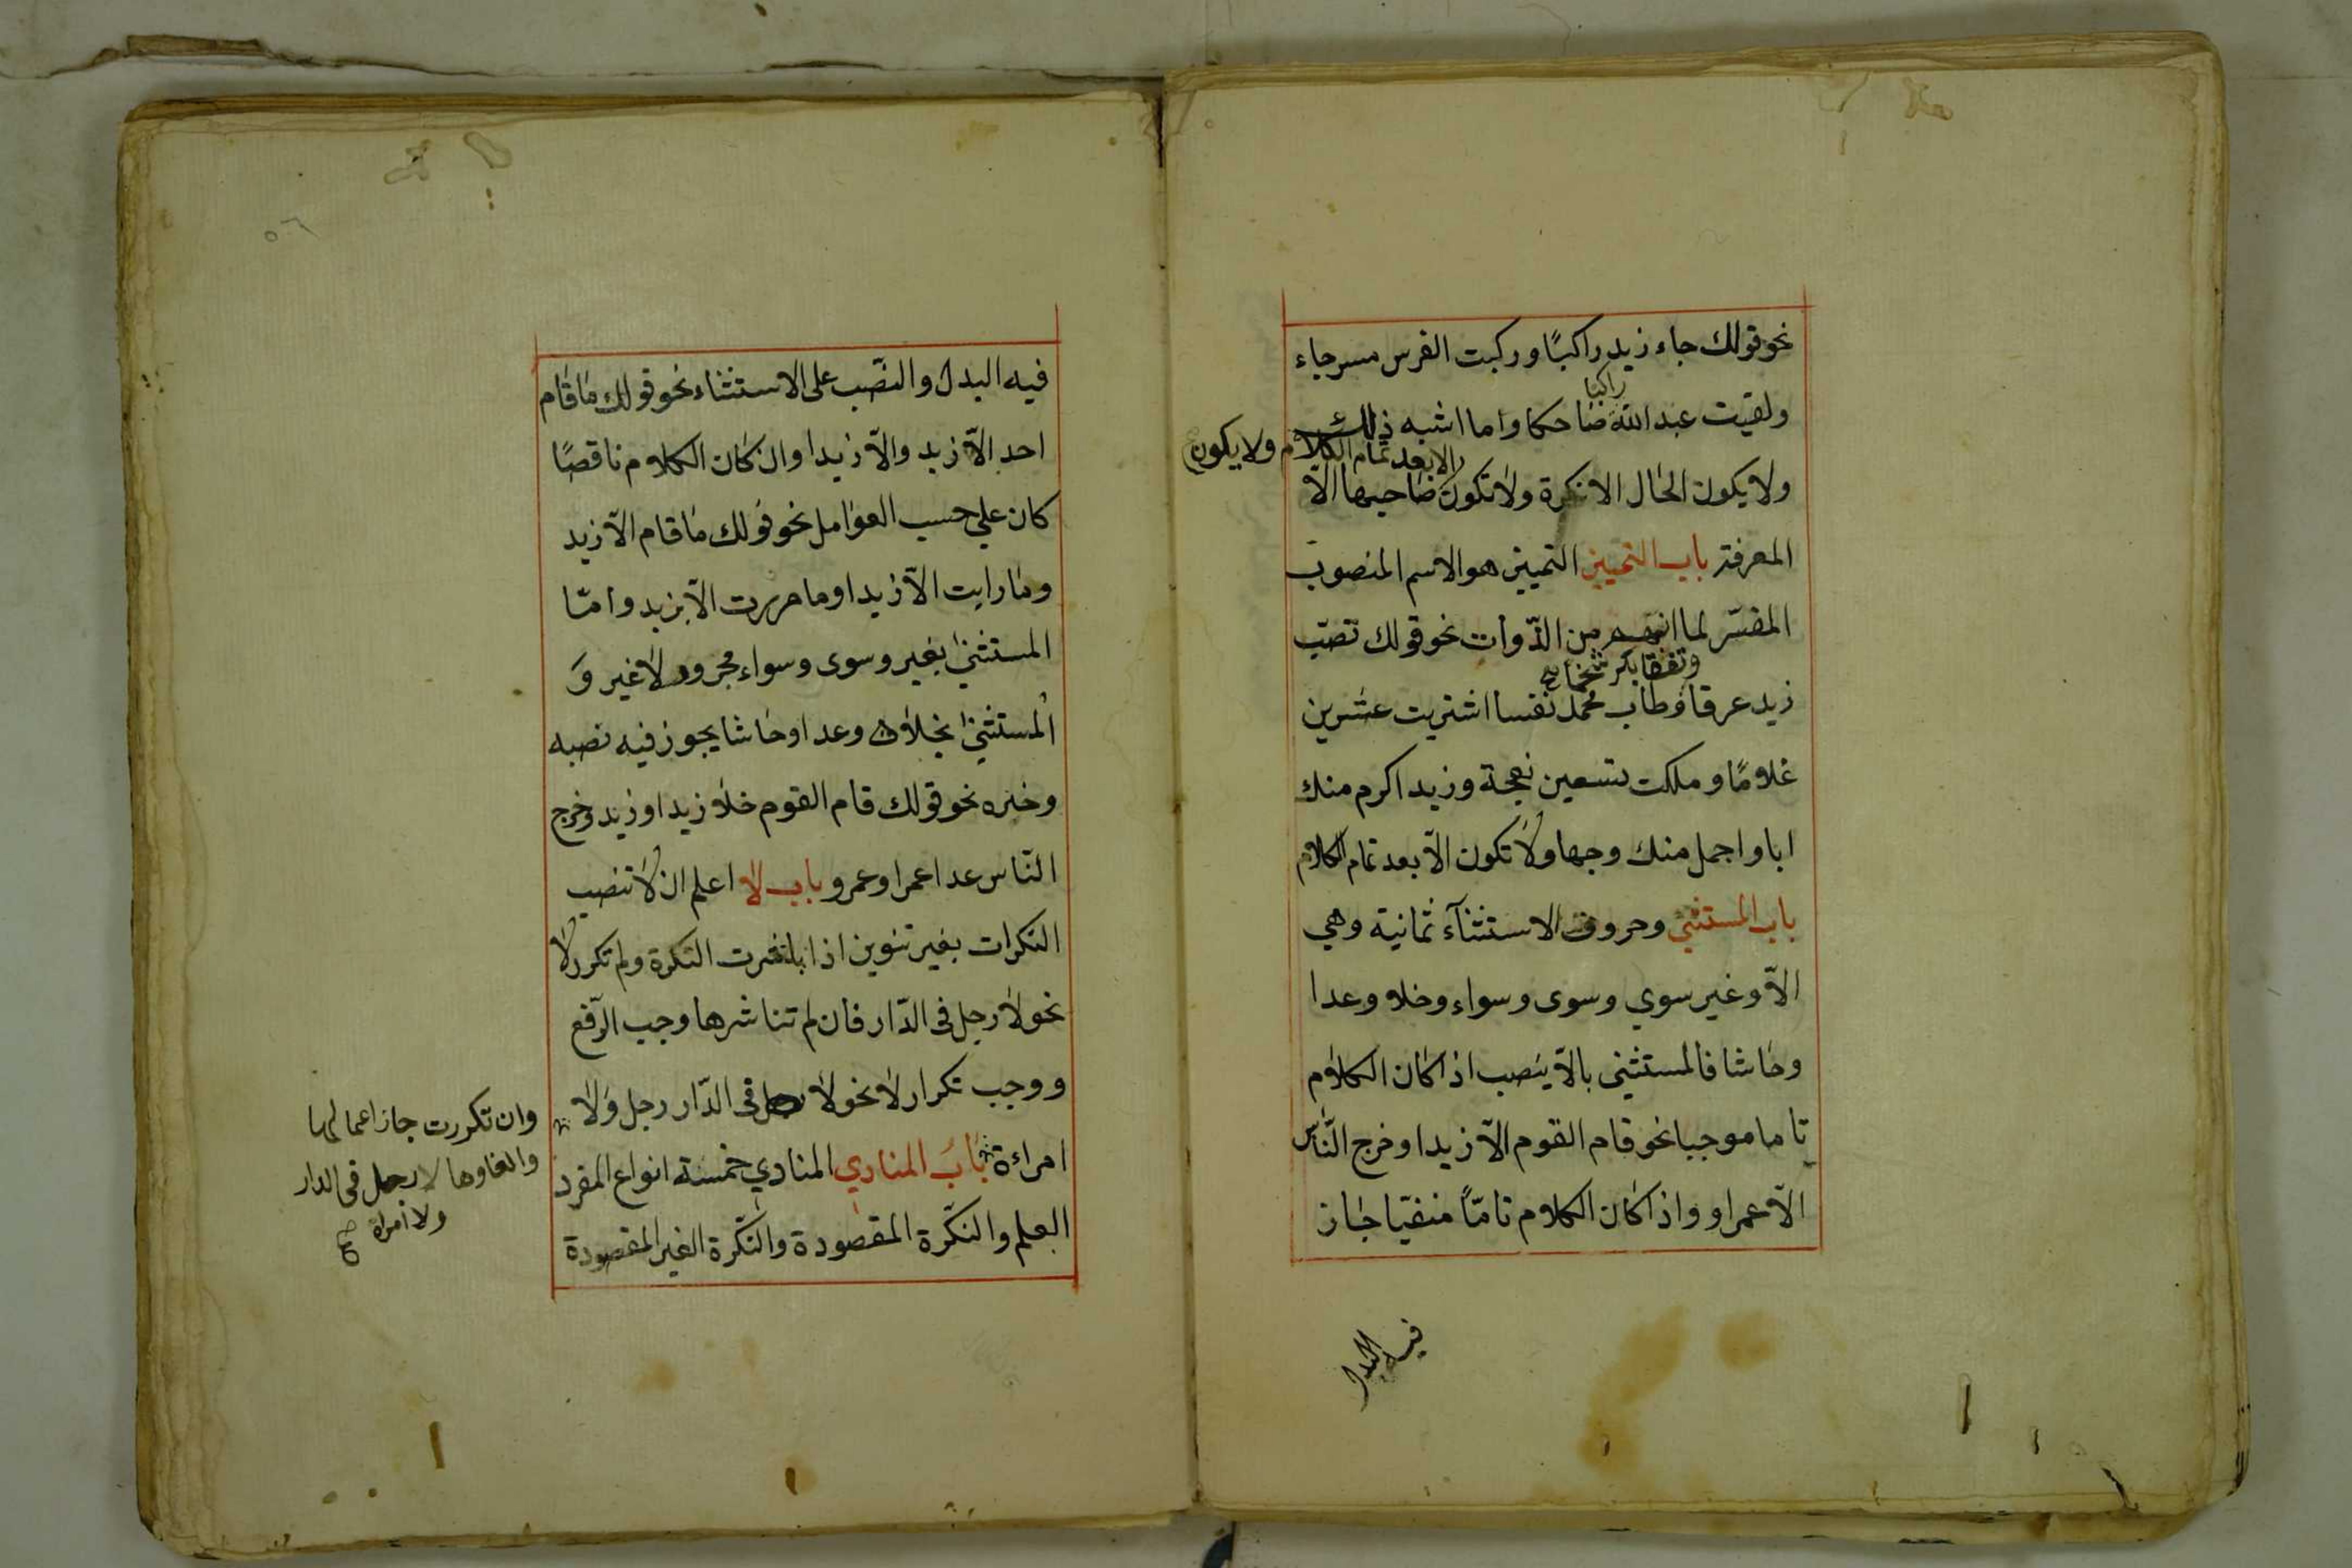 نحو قولك جاء زيد راكبًا وركبت الفرس مسرجاء
راكبا
ولقيت عبد الله ضاحكا واما اشبه ذلك
الا بعد تمام الكلام ولا يكون
ولا يكون الحال الا نكرة ولا تكون صاحبها الّا
المعرفة باب التمييز التميين هو الاسم المنصوب
المفسّر لما انبهم من الذّوات نحو قولك تصبّب
وتفقا بكر شحما صح
زيد عرقا وطاب محمد نفسا اشتريت عشرين
غلامًا وملكت تسعين نعجة وزيد اكرم منك
ابا واجمل منك وجها ولا تكون الّا بعد تمام الكلام
باب المستثنى وحروف الاستثنآء ثمانية وهي
الّا وغير سوي وسوى وسواء وخلا وعدا
وحاشا فالمستثنى بالّا ينصب اذا كان الكلام
تاما موجبا نحو قام القوم الّا زيدا وخرج النّاس
الّا عمرا و واذا كان الكلام تامّاً منفيّا جاز
فيه البدل
٥٦
فيه البدل والنصب على الاستثناء نحو قولك ما قام
احد الّا زيد والّا زيدا وان كان الكلام ناقصًا
كان علي حسب العوامل نحو قولك ما قام الّا زيد
وما رايت الّا زيدا وما مررت الّا بزيد وامّا
المستثنى بغير وسوى وسواء مجرور لا غير وَ
المستثنى بخلا وعدا وحاشا يجوز فيه نصبه
وخبره نحو قولك قام القوم خلا زيدا وزيد وخرج
النّاس عدا عمرا وعمرو باب لا اعلم ان لا تنصب
النكرات بغير تنوين اذا باشرت النّكرة ولم تكرر لا
نحو لا رجل فى الدّار فان لم تناشرها وجب الرّفع
ووجب تكرار لا نحو لا فى الدّار رجل وَلا
امراءة بَابُ المنادي المنادي خمسة انواع المفرد
العلم والنكّرة المقصودة والنّكّرة الغير المقصودة
وان تكررت جاز اعمالها
والغاوها لا رجل فى الدار
ولا امراة صح